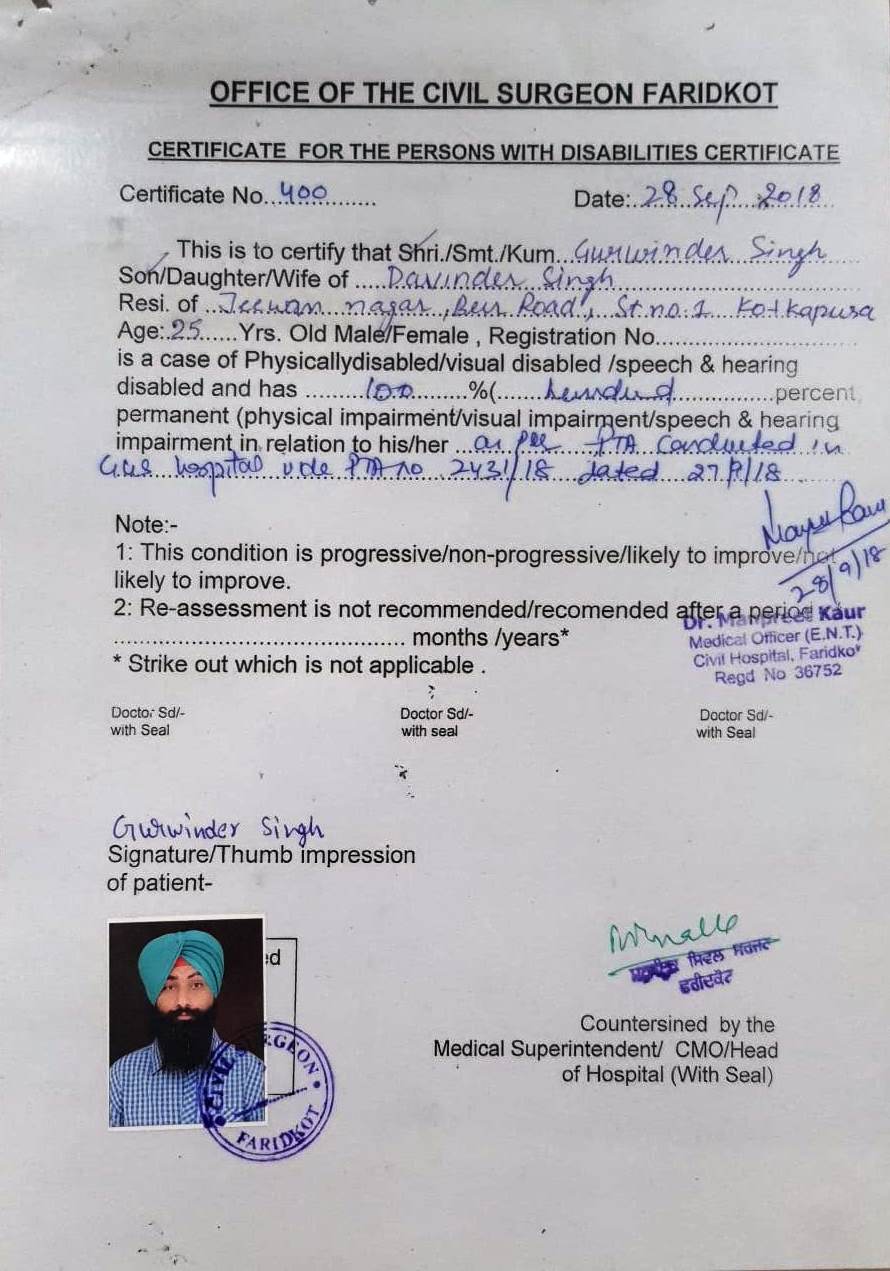 OFFICE OF THE CIVIL SURGEON FARIDKOT
CERTIFICATE FOR THE PERSONS WITH DISABILITIES CERTIFICATE
Certificate No..400............ Date:.28 Sep 2018
This is to certify that Shri./Smt./Kum...Gurwinder Singh
Son/Daughter/Wife of .....Davinder Singh
Resi. of ..Jeewan nagar, Road, St.no.1 Kotkapura
Age:.25......Yrs. Old Male/Female , Registration No..............................
is a case of Physicallydisabled/visual disabled /speech & hearing
disabled and has .........100.........%(.......hundred...............percent
permanent (physical impairment/visual impairment/speech & hearing
impairment in relation to his/her ...as per PTA Conducted in
hospital vide PTA no 2431/18 dated 27/9/18
Note:-
1: This condition is progressive/non-progressive/likely to improve/not
likely to improve.
2: Re-assessment is not recommended/recomended after a period
............................................. months /years*
* Strike out which is not applicable .
28/9/18
Dr. Manpreet Kaur
Medical Officer (E.N.T.)
Civil Hospital, Faridko
Regd No 36752
Doctor Sd/- Doctor Sd/- Doctor Sd/-
with Seal with seal with Seal
Gurwinder Singh
Signature/Thumb impression
of patient-
ed
CIVIL SURGEON
FARIDKOT
ਸਿਵਲ ਸਰਜਨ
ਫਰੀਦਕੋਟ
Countersined by the
Medical Superintendent/ CMO/Head
of Hospital (With Seal)